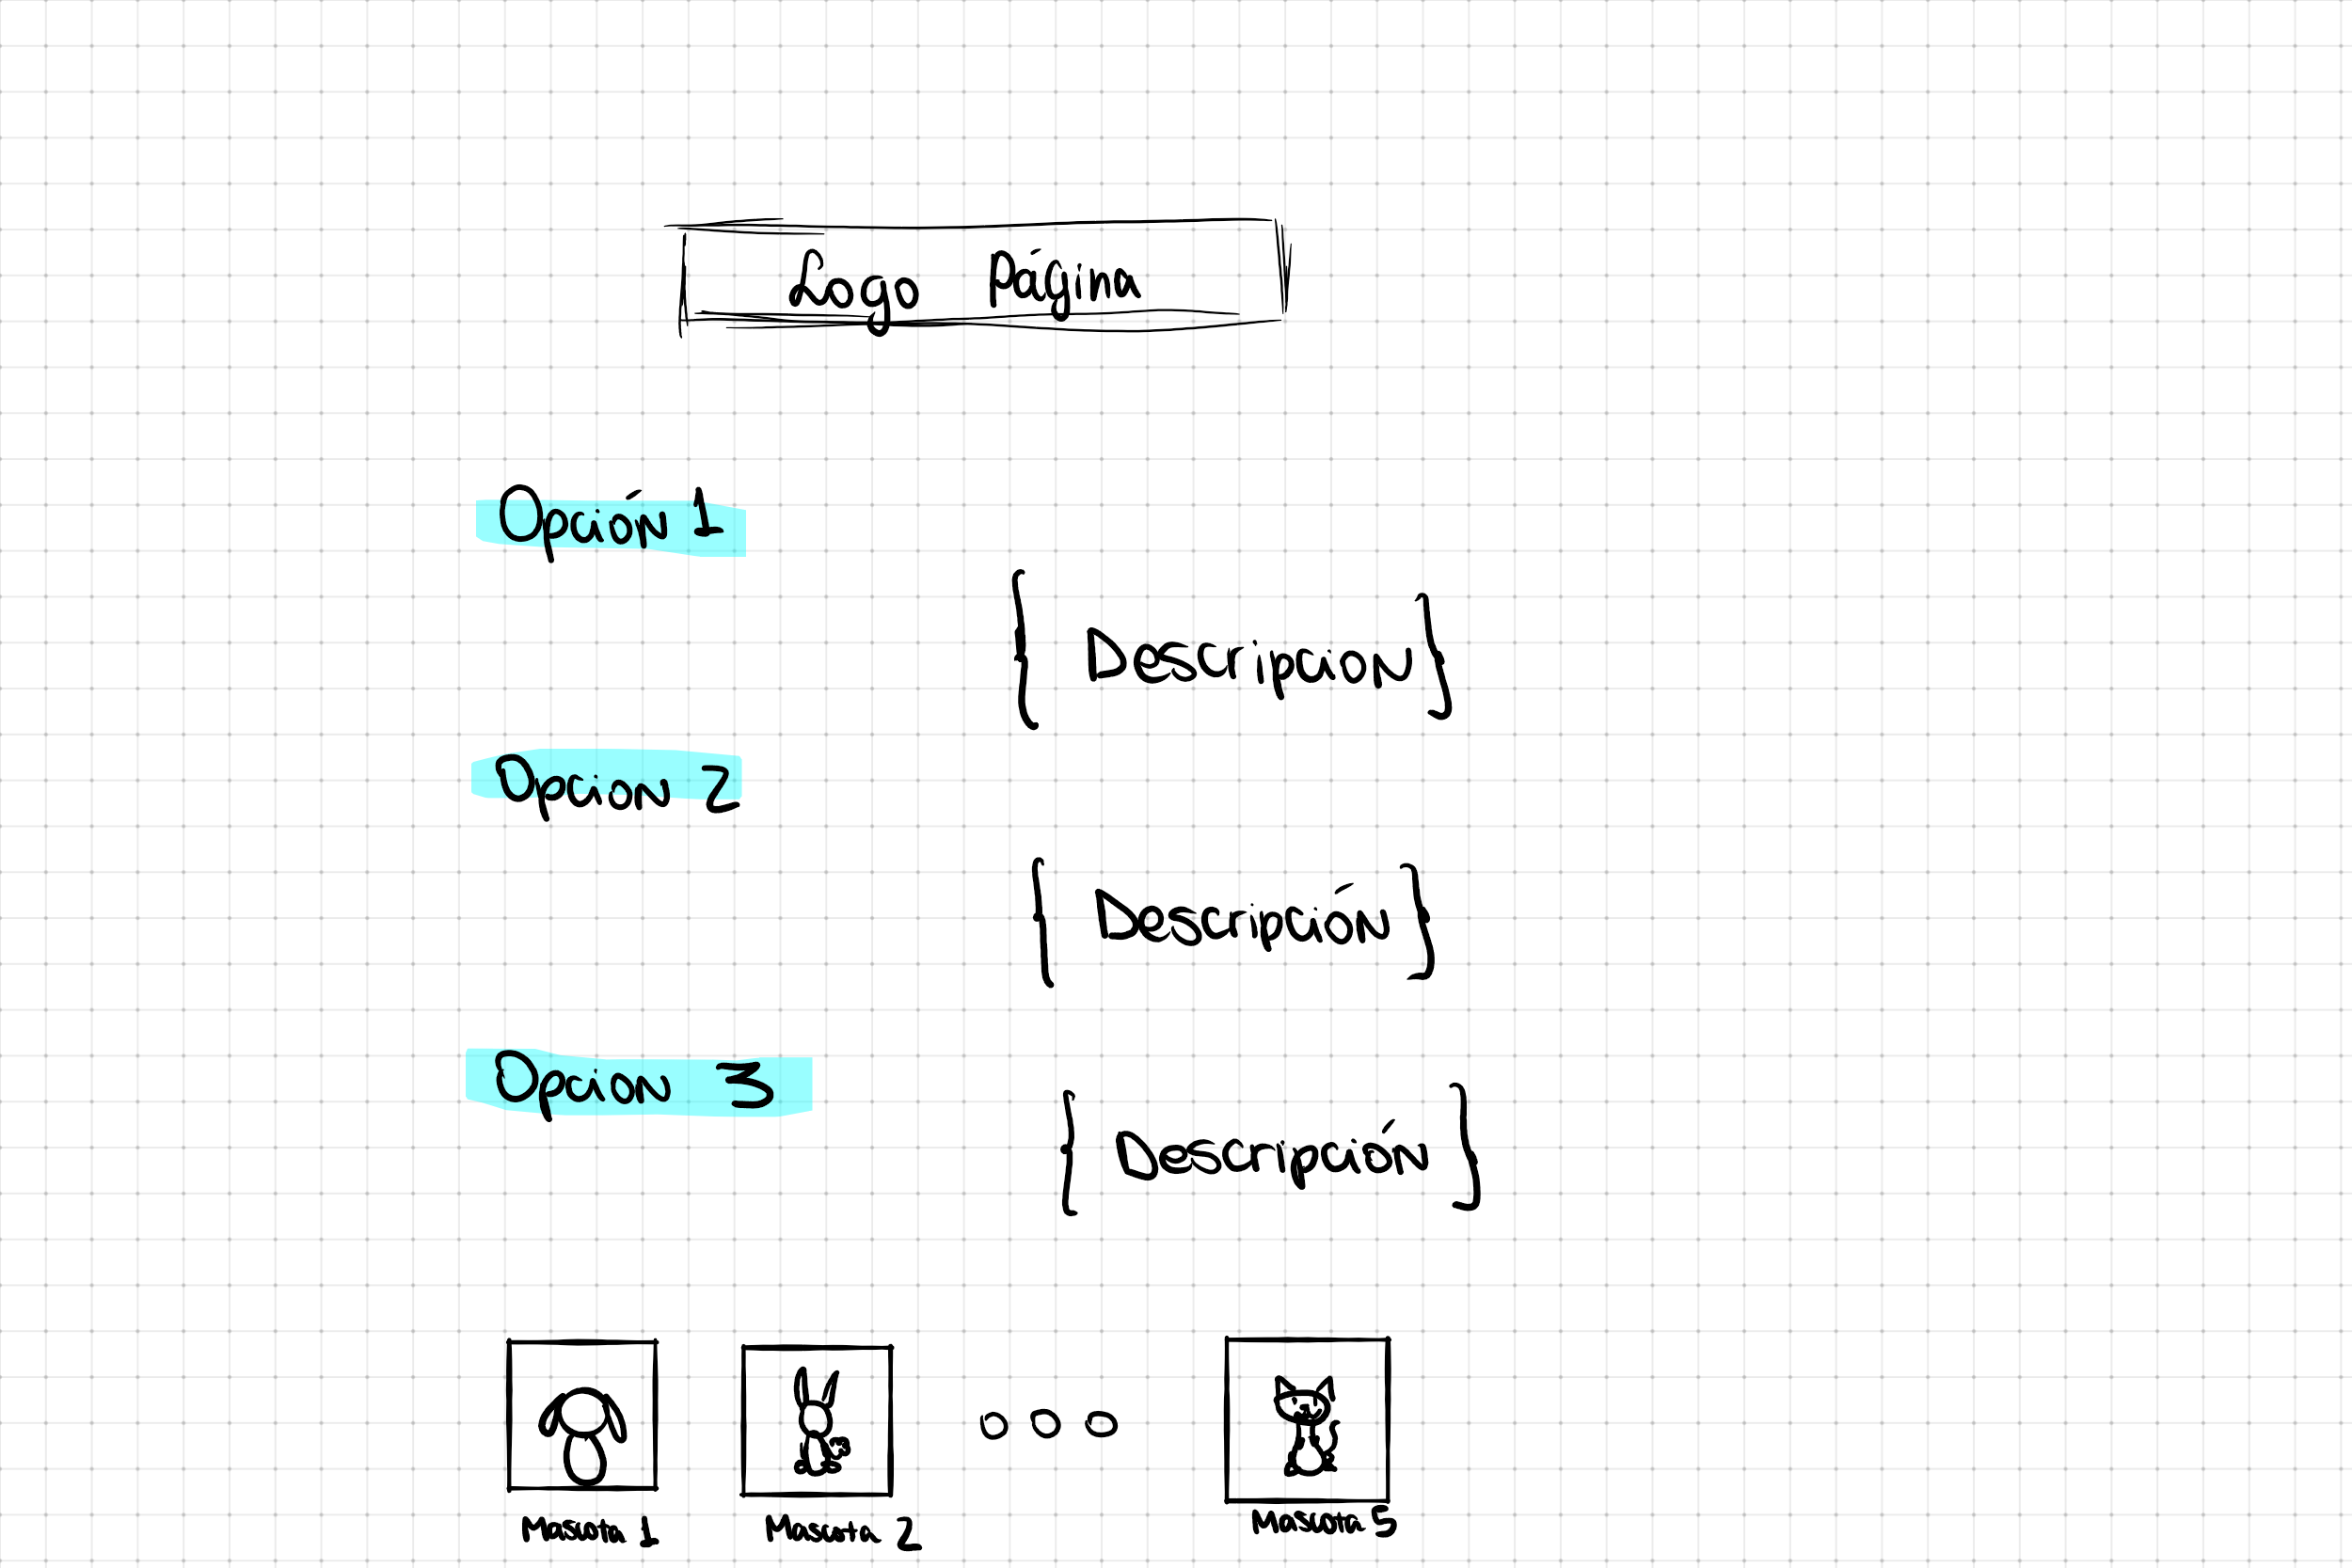 Logo Página
Opción 1
{ Descripcion }
Opcion 2
{ Descripción }
Opcion 3
{ Descripción }
Mascota 1 Mascota 2 Mascota 5